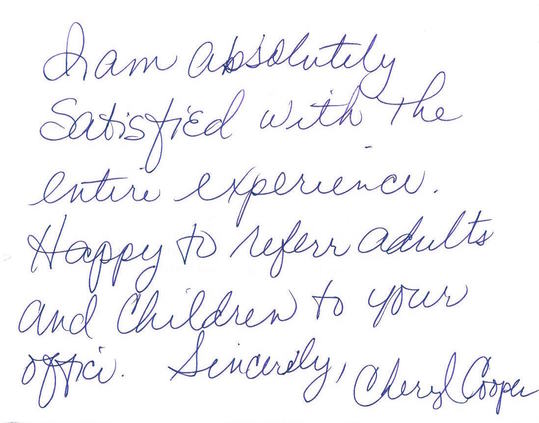 I am absolutely
Satisfied with the
entire experience.
Happy to referr adults
and Children to your
office. Sincerely, Cheryl Cooper